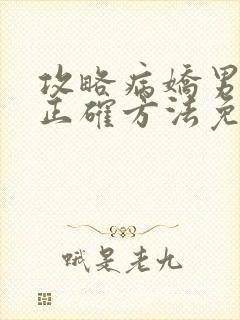 攻略病嬌男
正確方法免
哦是老九